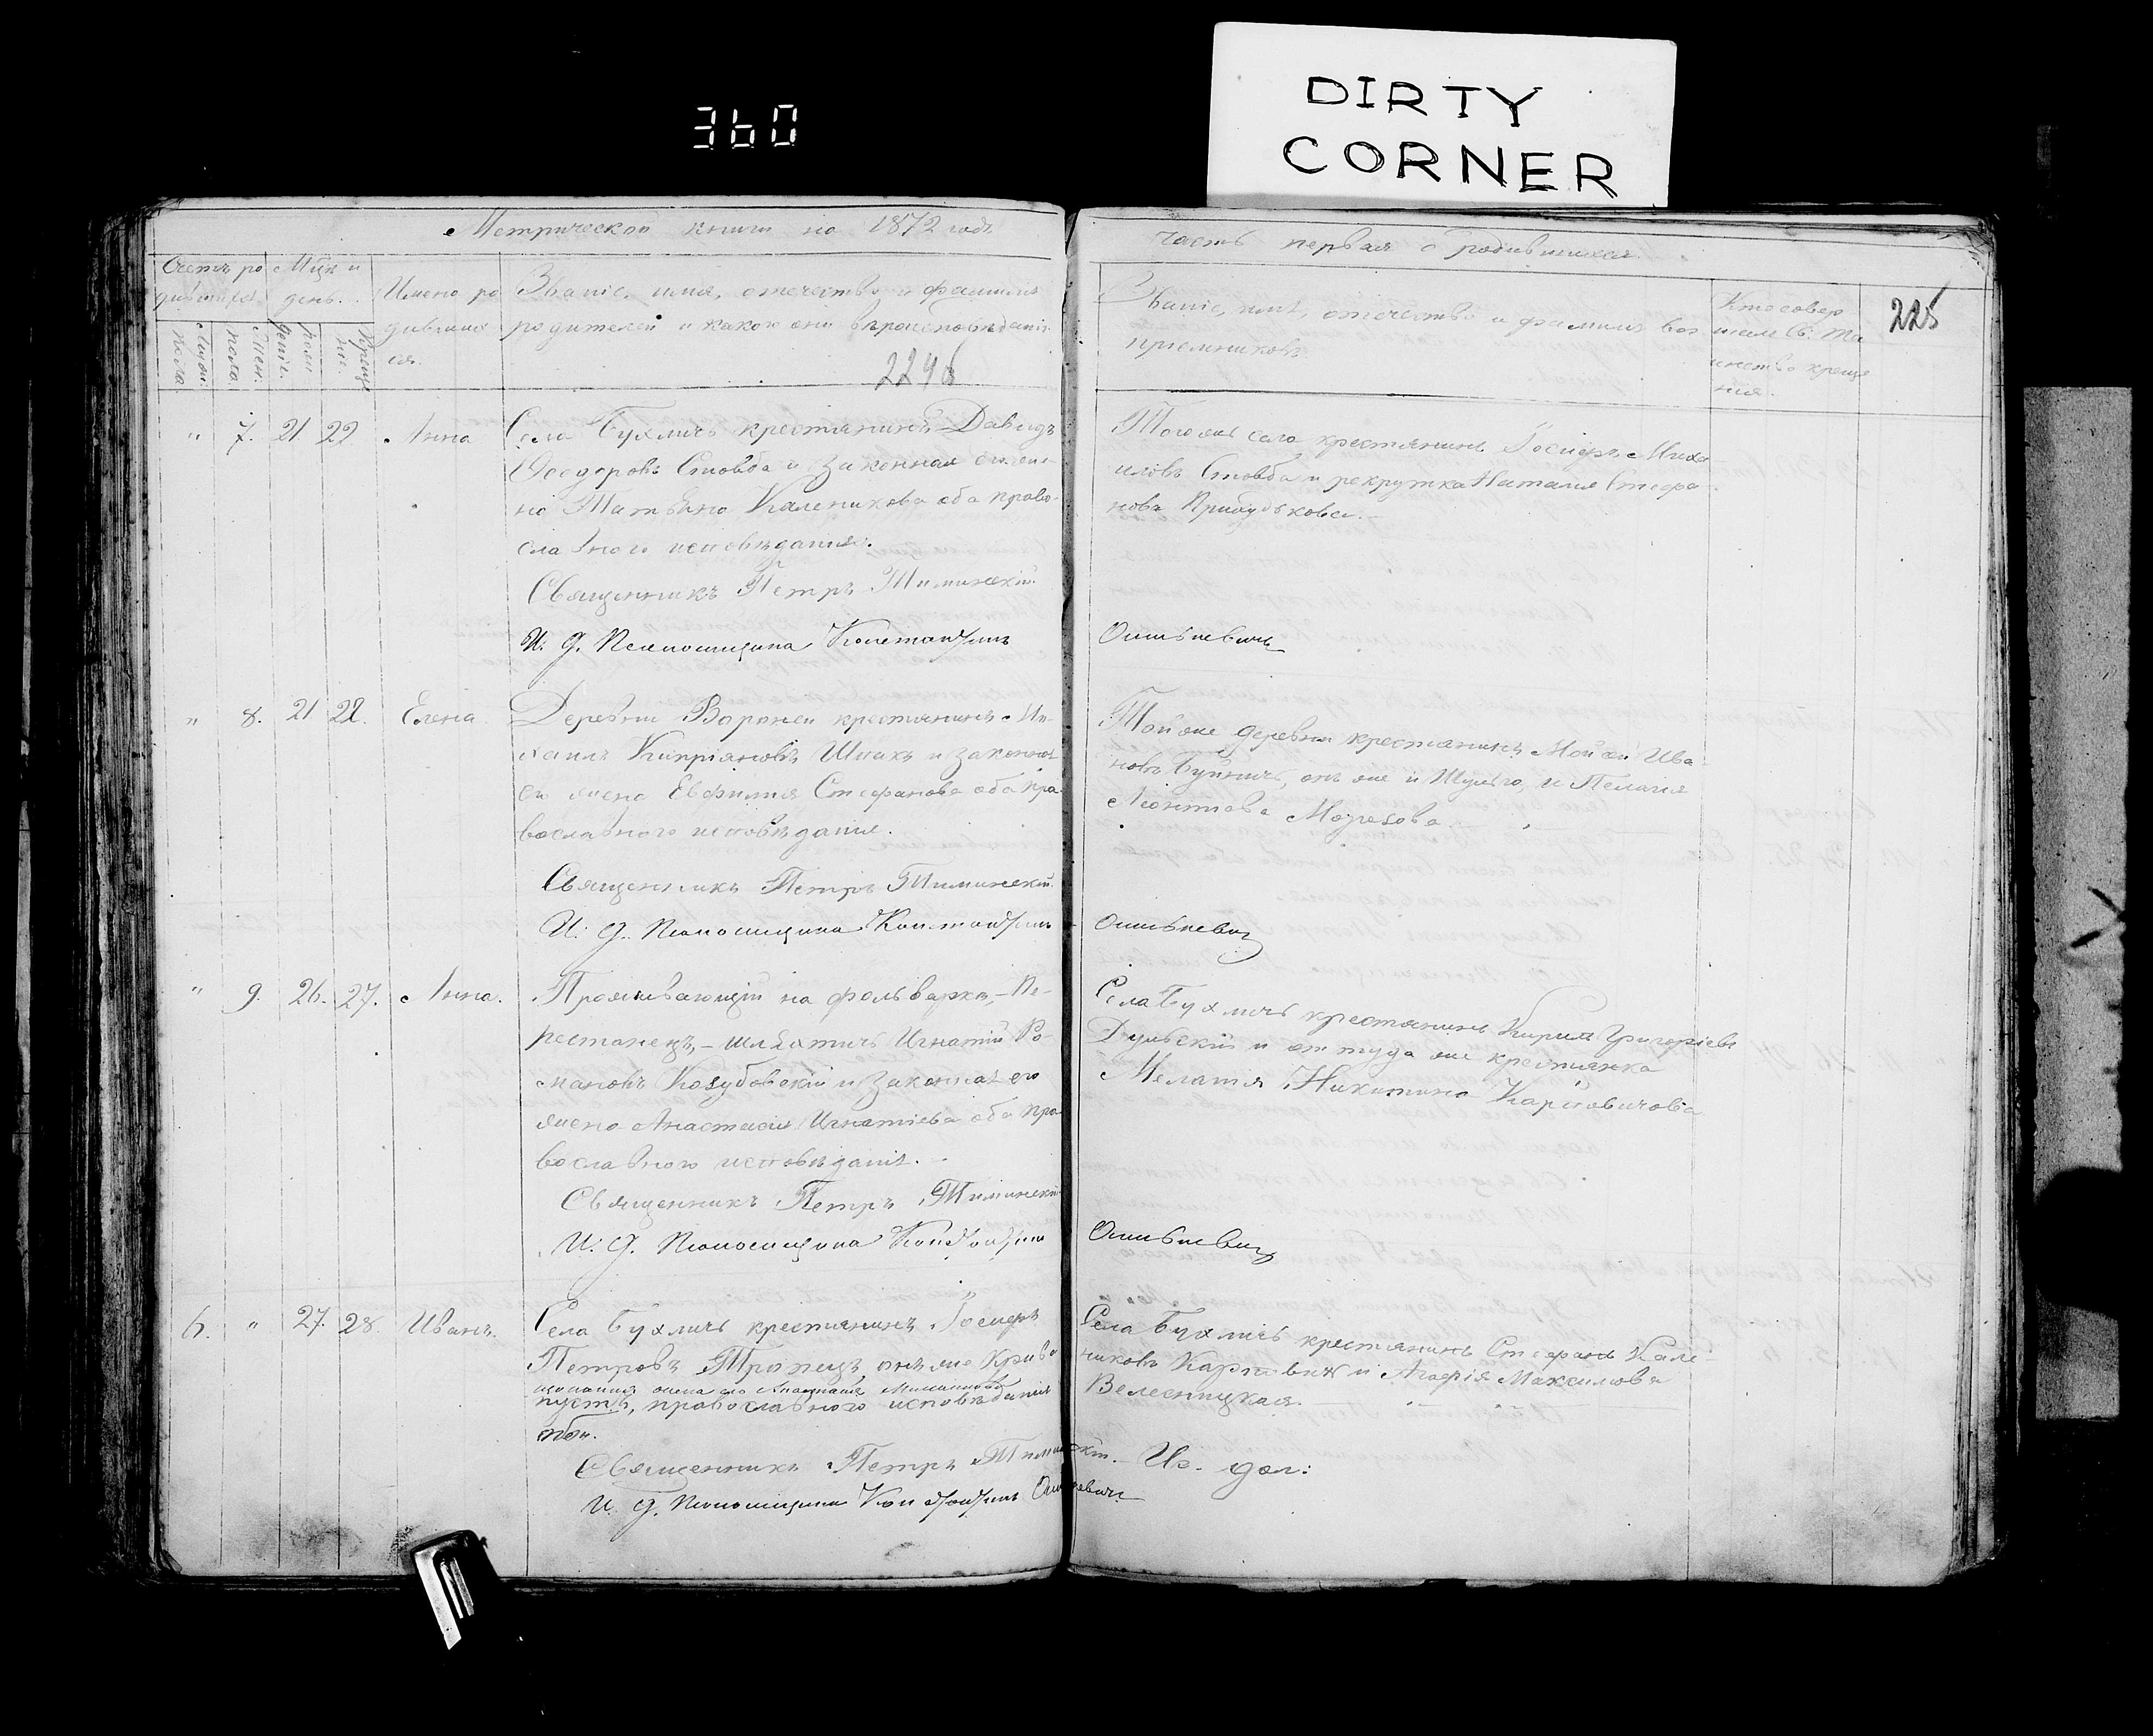 360
DIRTY
CORNER
Метрической книги на 1872 годъ
часть первая о родившихся.
Счетъ ро
дившихся
Мцъ и
день.
Имена ро
дивших
ся.
Званіе, имя, отечество и фамилія
родителей и какого они вѣроисповѣданія.
Званіе, имя, отечество и фамилія вос
пріемниковъ.
Кто совер
шалъ Св. Та
инство креще
нія.
225
224
" 7. 21 22 Анна
Села Бухличь крестьянинъ Давидъ
Ѳеодоровъ Стовба и законная его же-
на Татьяна Каленикова оба право-
славного исповѣданія.
Священникъ Петръ Тиминскій.
И. д. Псаломщика Константинъ
Тогоже села крестьянинъ Іосифъ Миха
иловъ Стовба и рекрутка Наталія Стефа-
нова Прибудькова.
" 8. 21 22. Елена
Деревни Вороней крестьянинъ Ми-
хаилъ Кипріяновъ Шпакъ и законная
его жена Евфимія Стефанова оба пра-
вославного исповѣданія.
Священникъ Петръ Тиминскій.
И. д. Псаломщика Константинъ
Тойже деревни крестьянинъ Мойсей Ива
новъ Буйничъ, онъ же и Шульга, и Пелагія
Леонтова Морозова
" 9. 26. 27. Анна.
Проживающій на фольваркѣ,- Пе-
рестанецъ,- шляхтичь Игнатій Ро-
мановъ Козубовскій и законная его
жена Анастасія Игнатіева оба пра-
вославного исповѣданія.
Священникъ Петръ Тиминскій
И. д. Псаломщика Константинъ
Села Бухличь крестьянинъ Кирилъ Григоріевъ
Дульскій и оттуда же крестьянка
Меланія Никитина Карповичова
6. " 27. 28 Иванъ.
Села Бухличь крестьянинъ Іосифъ
Петровъ Тропецъ, онъ же Криво
законная жена его Анастасія
пустъ, православного исповѣданія
оба.
Священникъ Петръ Тиминскій.
И. д. Псаломщика Константинъ
Села Бухличь крестьянинъ Стефанъ Кале-
никовъ Карповичъ и Агафія Максимова
Велесницкая.
Ис. дол: